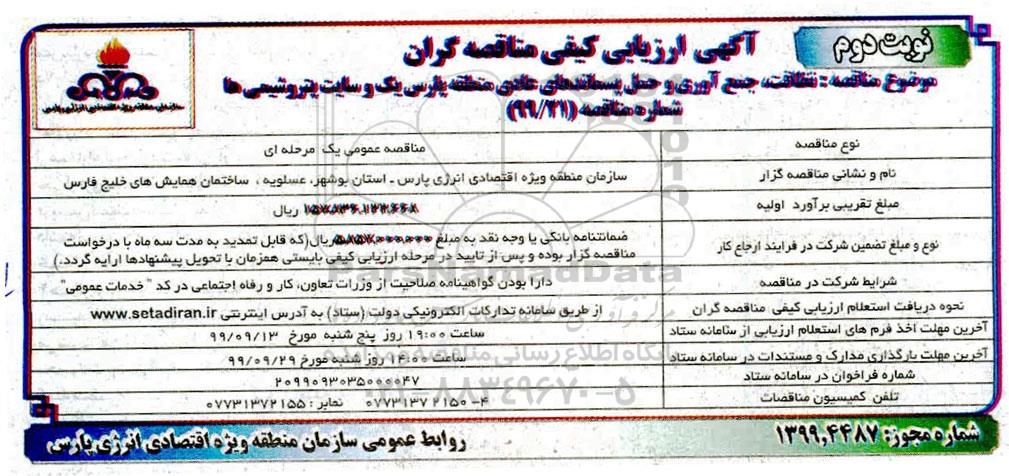 نوبت دوم
آگهی ارزیابی کیفی مناقصه گران
موضوع مناقصه : نظافت، جمع آوری و حمل پسماندهای عادی منطقه پارس یک و سایت پتروشیمی ها
شماره مناقصه (99/31)
نوع مناقصه
مناقصه عمومی یک مرحله ای
نام و نشانی مناقصه گزار
سازمان منطقه ویژه اقتصادی انرژی پارس ـ استان بوشهر، عسلویه ، ساختمان همایش های خلیج فارس
مبلغ تقریبی برآورد اولیه
ریال
نوع و مبلغ تضمین شرکت در فرایند ارجاع کار
ضمانتنامه بانکی یا وجه نقد به مبلغ ریال(که قابل تمدید به مدت سه ماه با درخواست
مناقصه گزار بوده و پس از تایید در مرحله ارزیابی کیفی بایستی همزمان با تحویل پیشنهادها ارایه گردد.)
شرایط شرکت در مناقصه
دارا بودن گواهینامه صلاحیت از وزرات تعاون، کار و رفاه اجتماعی در کد " خدمات عمومی"
نحوه دریافت استعلام ارزیابی کیفی مناقصه گران
از طریق سامانه تدارکات الکترونیکی دولت (ستاد) به آدرس اینترنتی www.setadiran.ir
آخرین مهلت اخذ فرم های استعلام ارزیابی از سامانه ستاد
ساعت 19:00 روز پنج شنبه مورخ 99/09/13
آخرین مهلت بارگذاری مدارک و مستندات در سامانه ستاد
ساعت 14:00 روز شنبه مورخ 99/09/29
شماره فراخوان در سامانه ستاد
2099093035000047
تلفن کمیسیون مناقصات
4- 2150 0773137 نمابر : 07731372155
شماره مجوز: 1399,4487
روابط عمومی سازمان منطقه ویژه اقتصادی انرژی پارس
ParsNamadData
پایگاه اطلاع رسانی
88349670-5